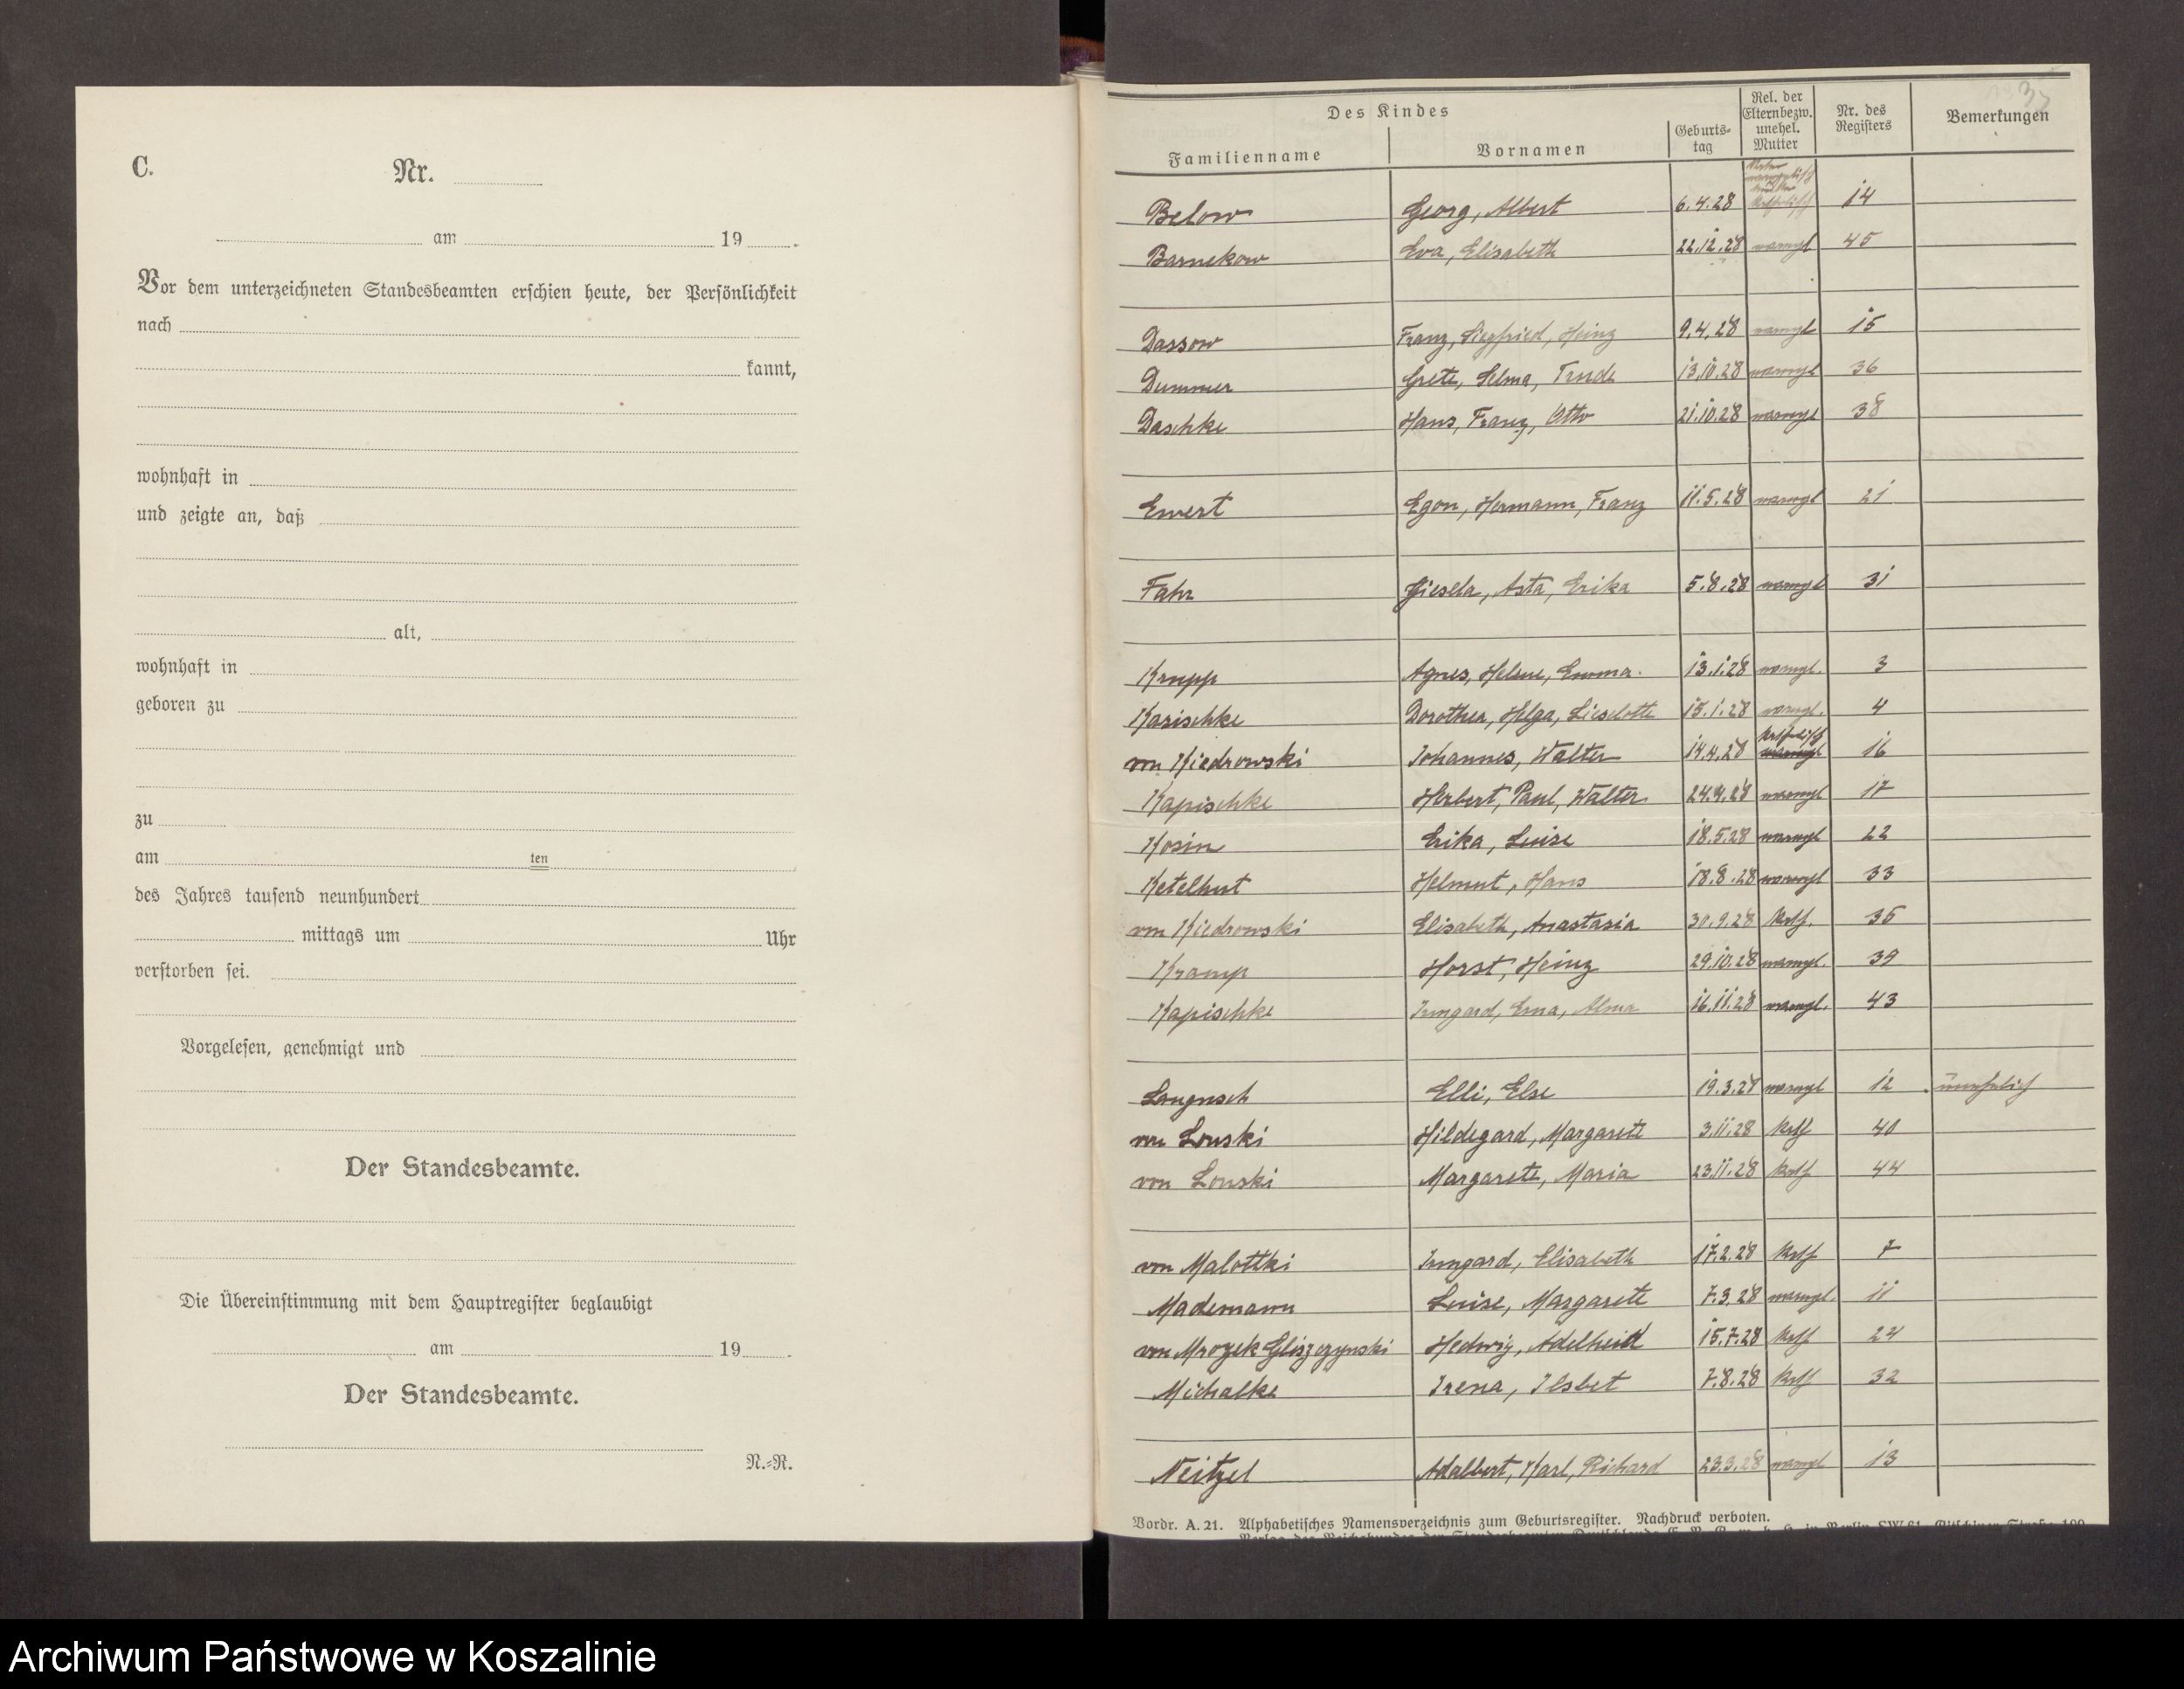 C.
Nr.
am 19 .
Vor dem unterzeichneten Standesbeamten erschien heute, der Persönlichkeit
nach
kannt,
wohnhaft in
und zeigte an, daß
alt,
wohnhaft in
geboren zu
zu
am ten
des Jahres tausend neunhundert
mittags um Uhr
verstorben sei.
Vorgelesen, genehmigt und
Der Standesbeamte.
Die Übereinstimmung mit dem Hauptregister beglaubigt
am 19 .
Der Standesbeamte.
N.=R.
Des Kindes
Familienname
Vornamen
Geburts=
tag
Rel. der
Eltern bezw.
unehel.
Mutter
Nr. des
Registers
Bemerkungen
Below Georg, Albert 6.4.28 katholisch 14
Barnekow Eva, Elisabeth 22.12.28 evangl 45
Dassow Franz, Siegfried, Heinz 9.4.28 evangl 15
Dummer Grete, Selma, Trude 13.10.28 evangl 36
Daschke Hans, Franz, Otto 21.10.28 evangl 38
Ewert Egon, Hermann, Franz 11.5.28 evangl 21
Fahr Giesela, Asta, Erika 5.8.28 evangl 31
Krupp Agnes, Helene, Emma. 13.1.28 evangl. 3
Karischke Dorothea, Helga, Lieselotte 15.1.28 evangl. 4
von Kiedrowski Johannes, Walter 14.4.28 katholisch evangl 16
Kapischke Herbert, Paul, Walter 24.4.28 evangl 17
Kosin Erika, Luise 18.5.28 evangl 22
Ketelhut Helmut, Hans 18.8.28 evangl 33
von Kiedrowski Elisabeth, Anastasia 30.9.28 kath. 35
Kramp Horst, Heinz 29.10.28 evangl. 39
Kapischke Irmgard, Erna, Alma 16.11.28 evangl. 43
Elli, Else evangl 12 unehelich
von Hildegard, Margarete 3.11.28 kath 40
von Margarete, Maria 23.11.28 kath 44
von Malottki Irmgard, Elisabeth 17.2.28 kath 7
Mademann Luise, Margarete 7.3.28 evangl. 11
von Mrozek Gliszczynski Hedwig, Adelheid 15.7.28 kath
Michalke Irena, Ilsbet 7.8.28 kath 32
Neitzel Adalbert, Karl, Richard 23.3.28 evangl 13
Vordr. A. 21. Alphabetisches Namensverzeichnis zum Geburtsregister. Nachdruck verboten.
Archiwum Państwowe w Koszalinie